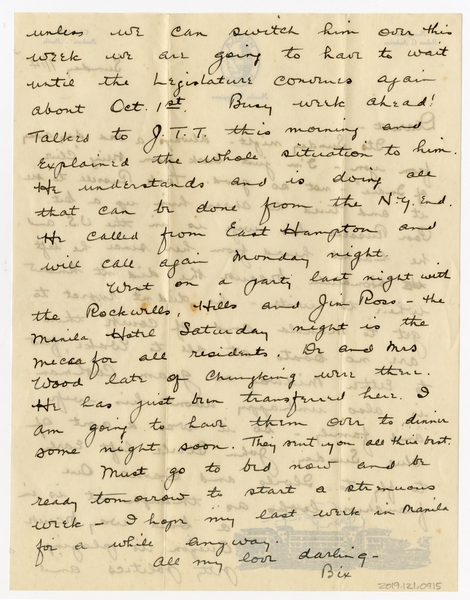 unless we can switch him over this
week we are going to have to wait
until the Legislature convenes again
about Oct. 1st. Busy week ahead!
Talked to J.T.T. this morning and
explained the whole situation to him.
He understands and is doing all
that can be done from the N.Y. End.
He called from East Hampton and
will call again Monday night.
Went on a party last night with
the Rockwells, Hills and Jim Ross - the
Manila Hotel Saturday night is the
mecca for all residents. Dr and Mrs
Wood late of Chungking were there.
He has just been transferred here. I
am going to have them over to dinner
some night soon. They sent you all their best.
Must go to bed now and be
ready tomorrow to start a strenuous
week - I hope my last week in Manila
for a while anyway.
All my love darling -
Bix
2019.121.0915